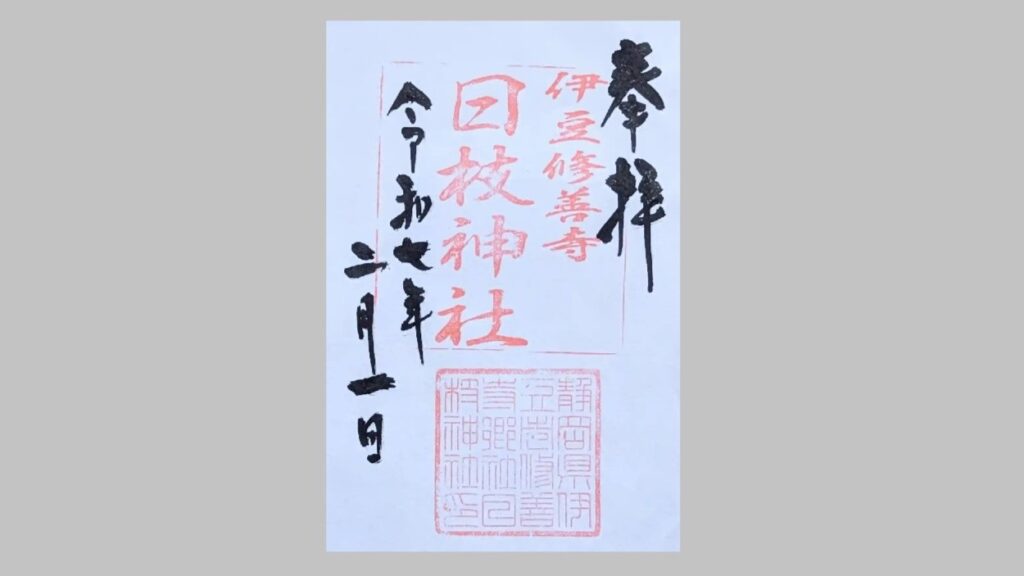 奉拝
伊豆修善寺
日枝神社
令和七年
二月一日
静岡県伊
豆市修善
寺郷社日
枝神社印